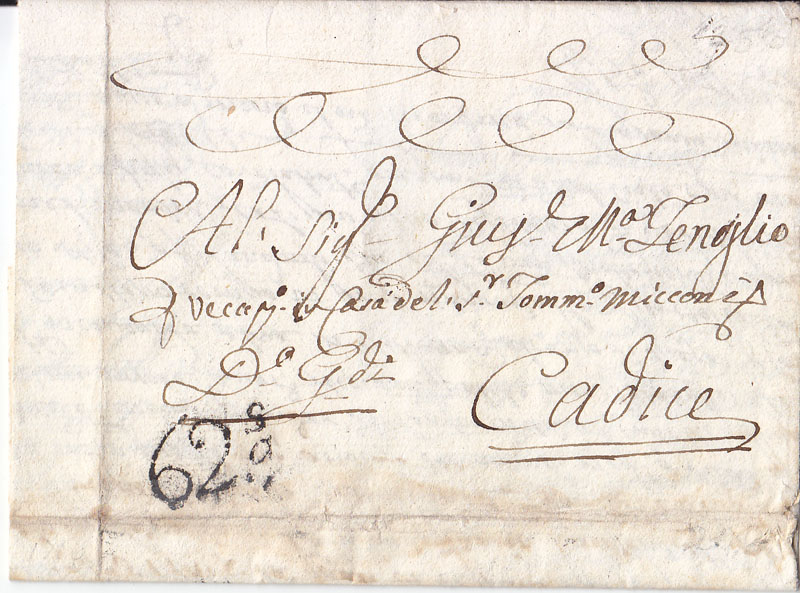 Al Sigr Gius.e Ma. Tenoglio
Recapo. in Casa del Sr. Tommo. Micconi
Do. Gdi
Cadice
62 so